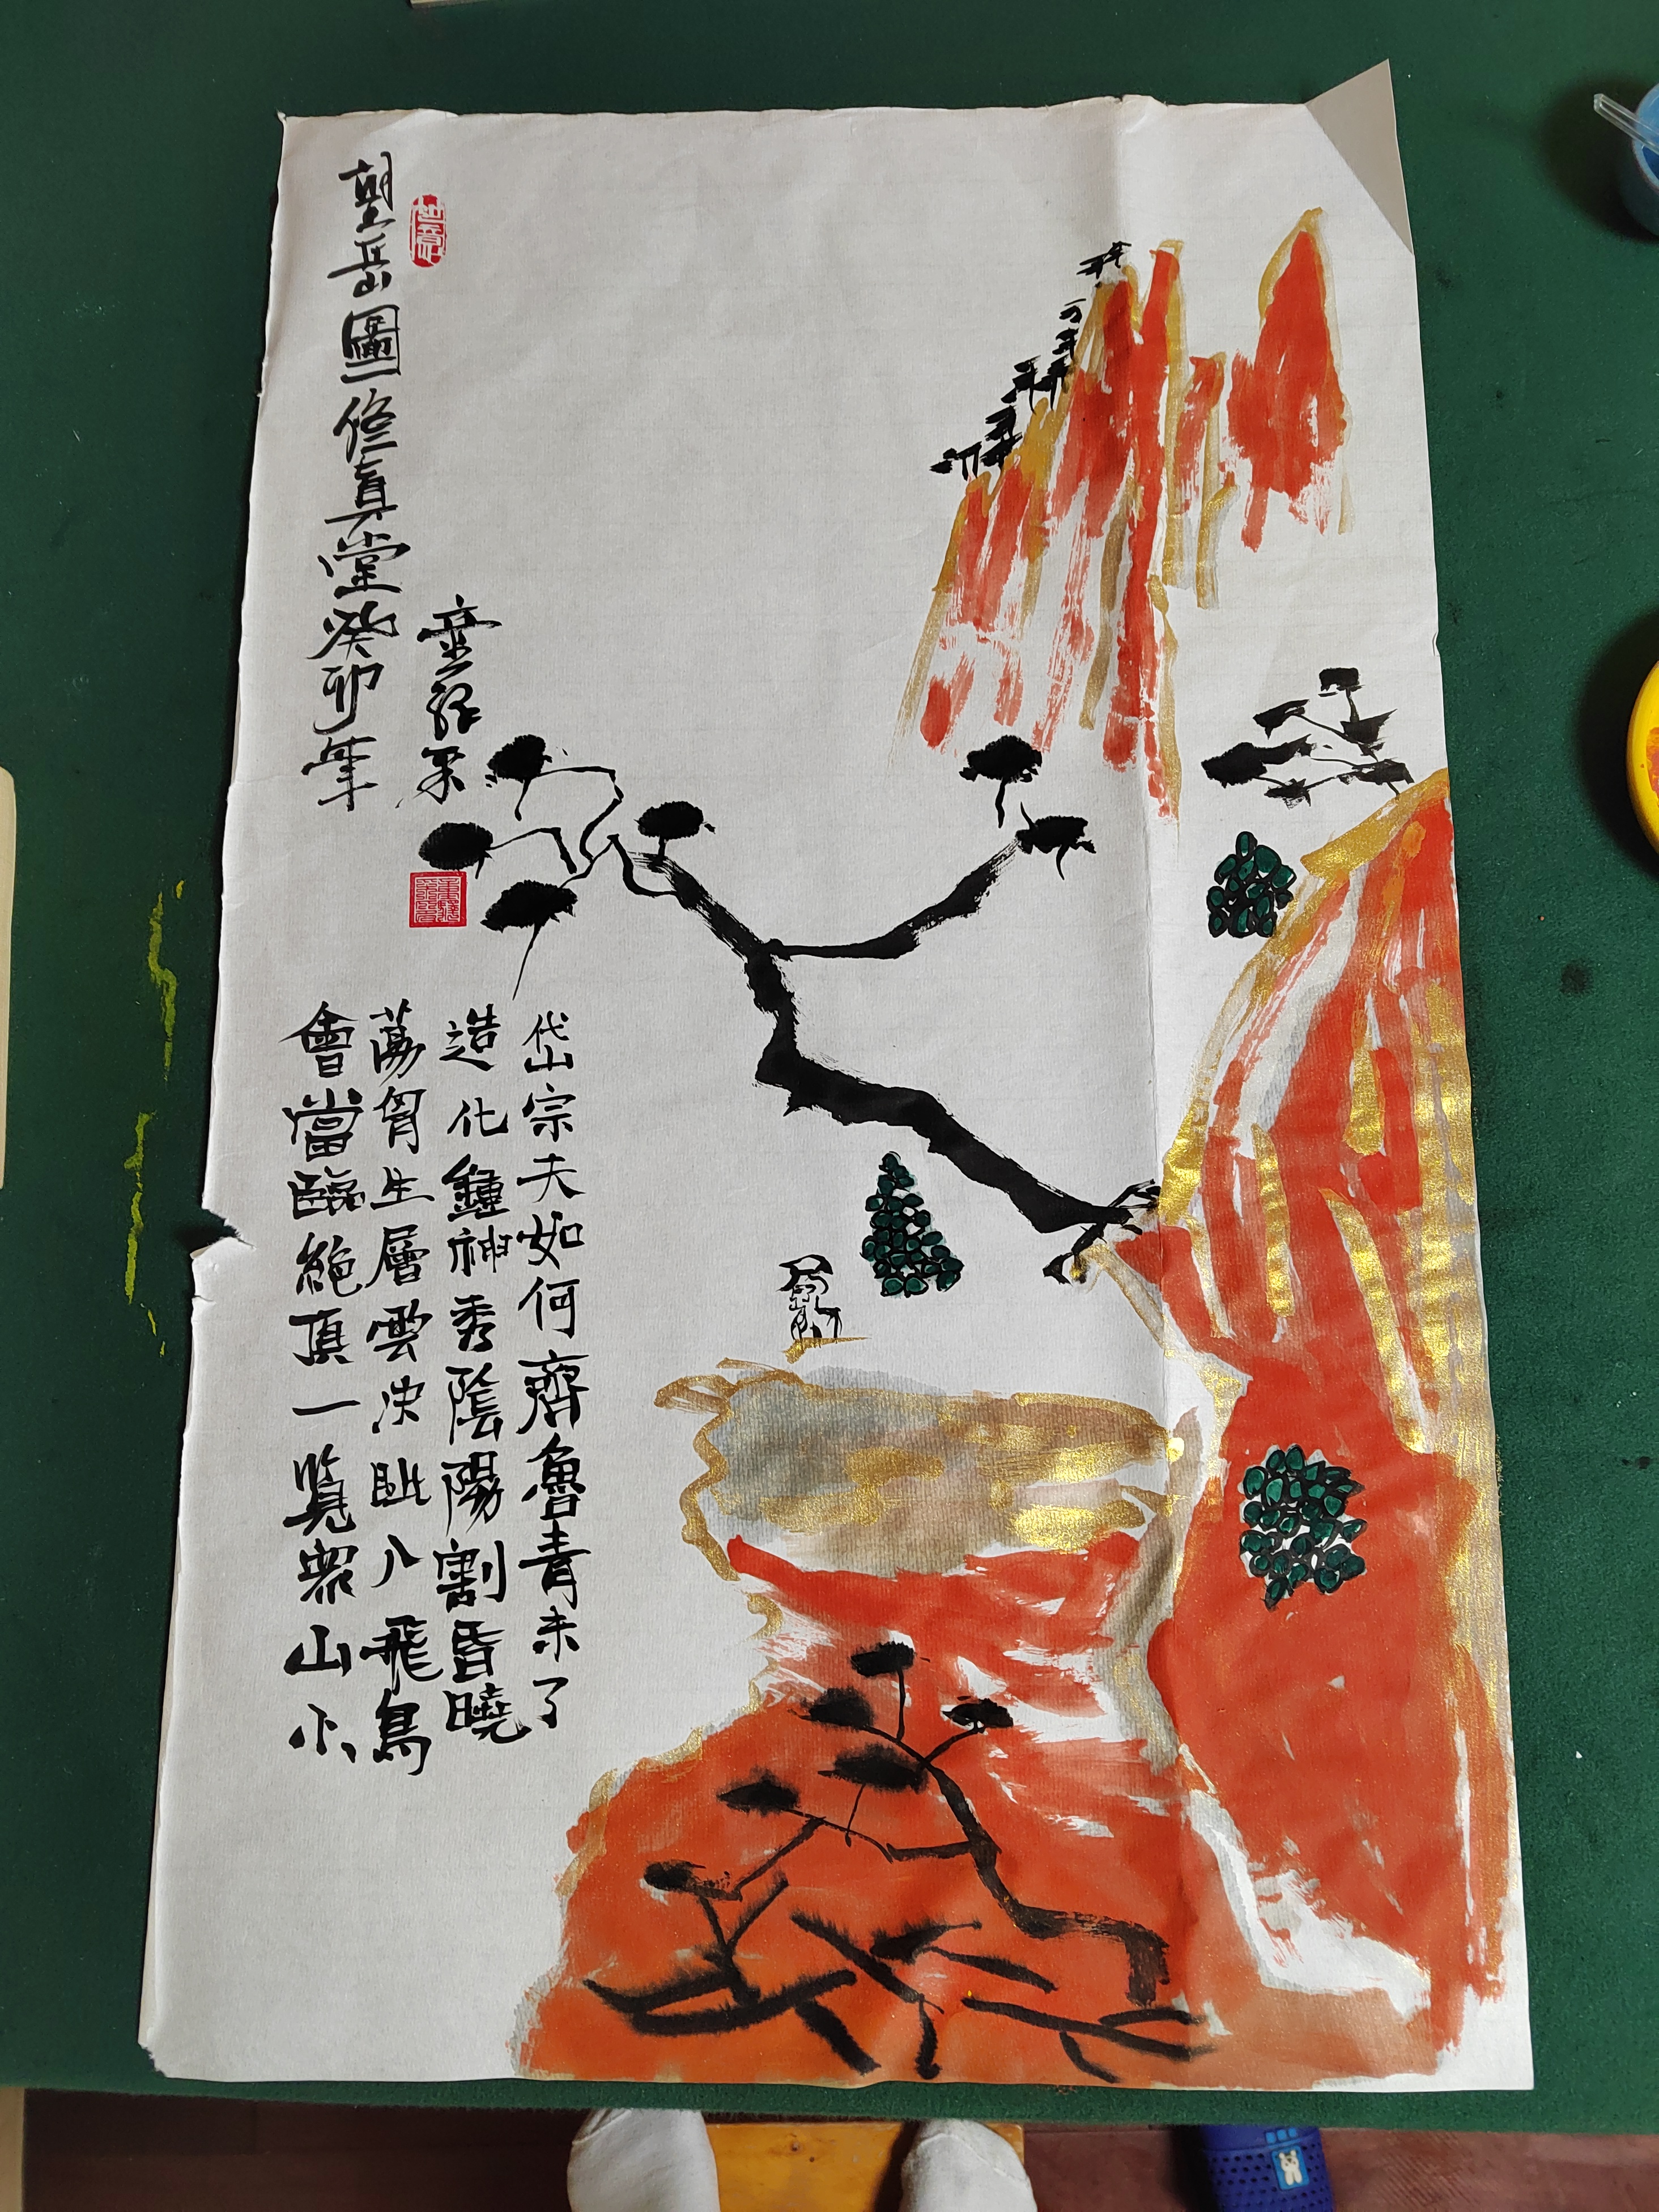 望岳圖修真堂癸卯年
如意
岱宗夫如何齊魯青未了
造化鐘神秀陰陽割昏曉
蕩胷生層雲決眦入飛鳥
會當臨絶頂一覽眾山小